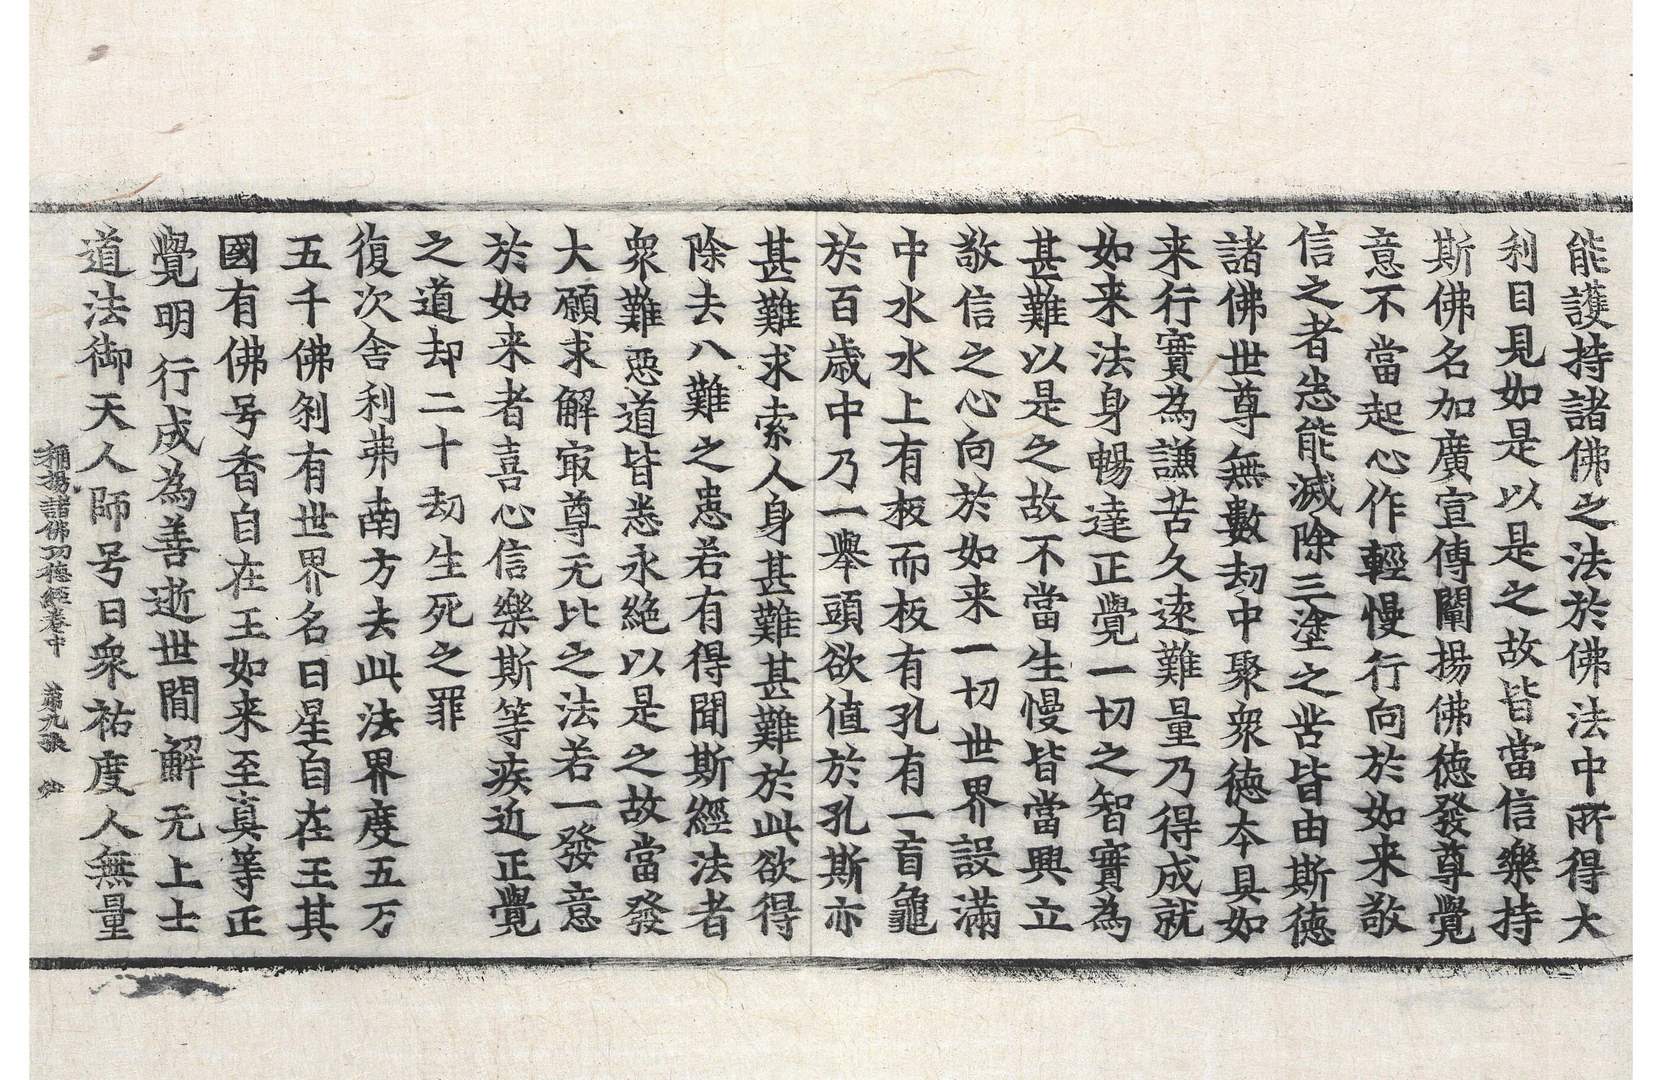 能護持諸佛之法於佛法中所得大
利目見如是以是之故皆當信樂持
斯佛名加廣宣傳闡揚佛德發尊覺
意不當起心作輕慢行向於如来敬
信之者悉能滅除三塗之苦皆由斯德
諸佛世尊無數劫中聚衆德本具如
来行實為謙苦久遠難量乃得成就
如来法身暢達正覺一切之智實為
甚難以是之故不當生慢皆當興立
敬信之心向於如来一切世界設滿
中水水上有板而板有孔有一盲龜
於百歲中乃一舉頭欲值於孔斯亦
甚難求索人身甚難甚難於此欲得
除去八難之患若有得聞斯經法者
衆難惡道皆悉永絶以是之故當發
大願求解冣尊无比之法若一發意
於如来者喜心信樂斯等疾近正覺
之道却二十劫生死之罪
復次舍利弗南方去此法界度五万
五千佛刹有世界名曰星自在王其
國有佛号香自在王如来至真等正
覺明行成為善逝世間解无上士
道法御天人師号曰衆祐度人無量
稱揚諸佛功德經卷中 第九張